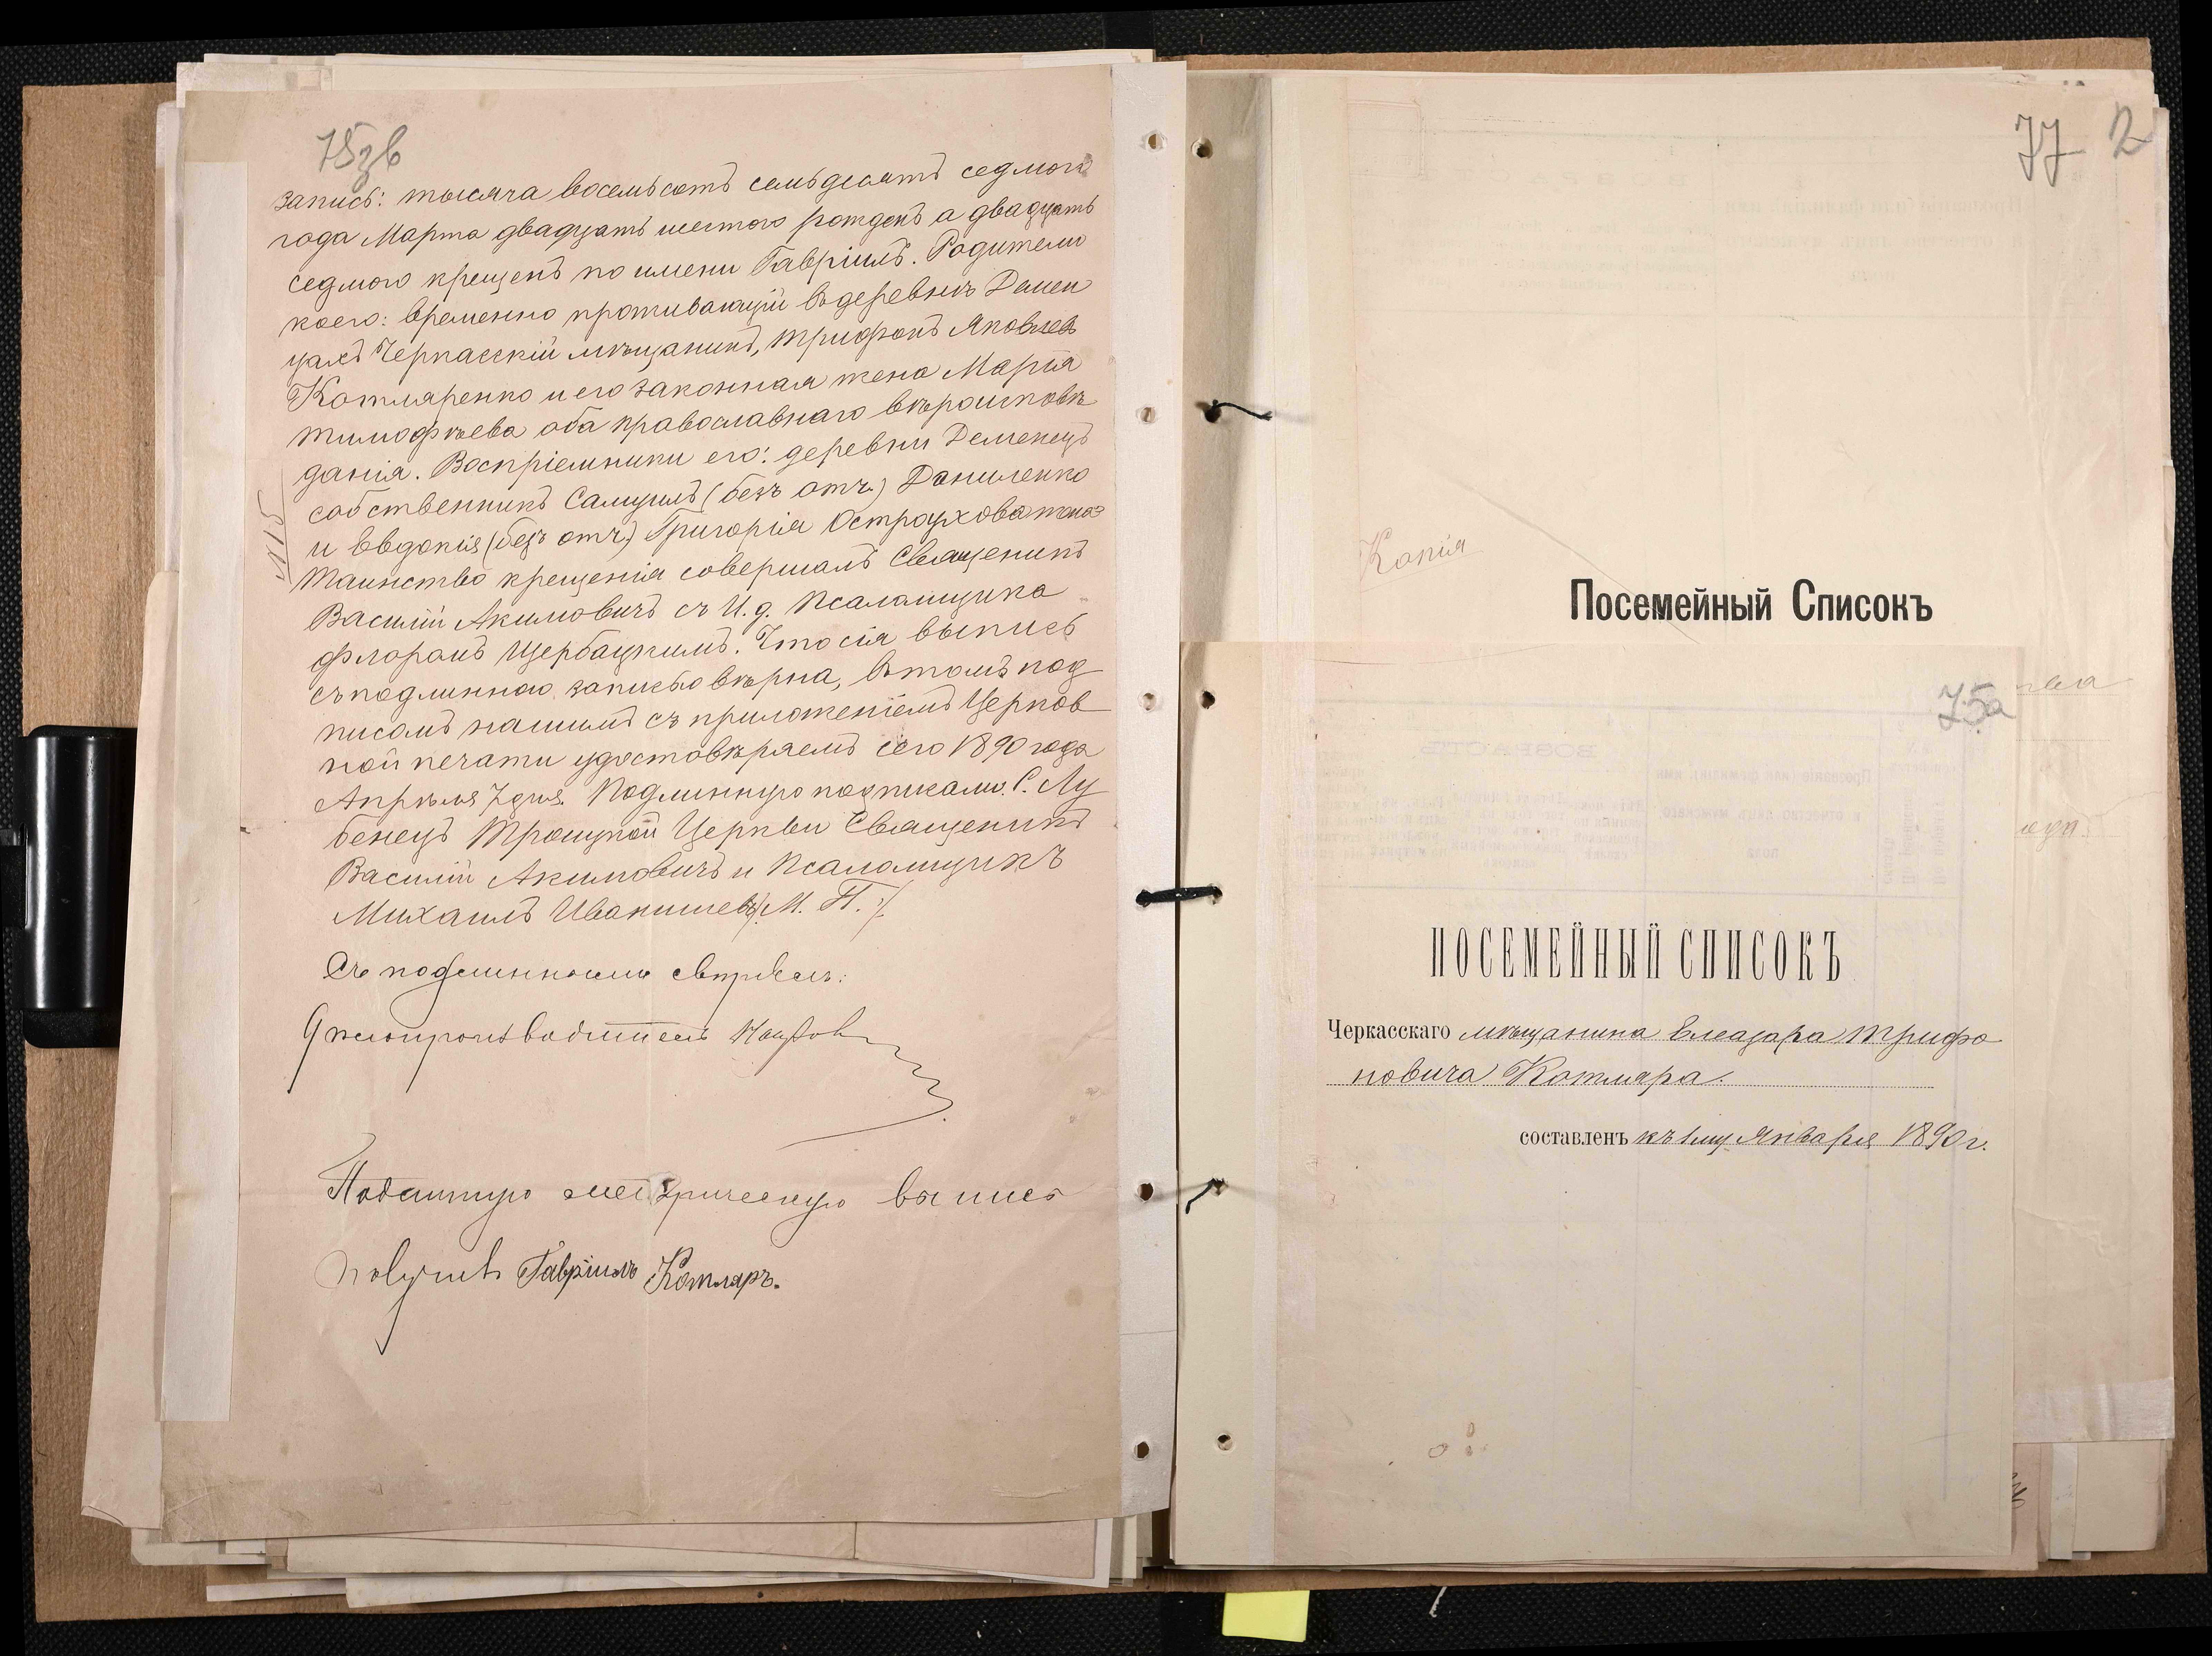 75зв
запись: тысяча восемьсотъ семьдесятъ седмого
года Марта двадцать шестого рожденъ а двадцать
седмого крещенъ по имени Гавріилъ. Родители
коего: временно проживающій въ деревнѣ Демен
цахъ Черкасскій мѣщанинъ, Трифонъ Яковлевъ
Котляренко и его законная жена Марія
Тимофѣева оба православнаго вѣроисповѣ
данія. Воспріемники его: деревни Деменецъ
собственникъ Самуилъ (безъ отч.) Даниленко
и Евдокія (безъ отч.) Григорія Остроухова жена
№15
Таинство крещенія совершалъ Священикъ
Василій Акимовичъ съ И. д. Псаломщика
Флоромъ Щербацкимъ. Что сія выпись
съ подлинною записью вѣрна, въ томъ под
писомъ нашимъ съ приложеніемъ Церков
ной печати удостовѣряемъ сего 1890 года
Апрѣля 7 дня. Подлинную подписали: С. Лу
бенецъ Троицкой Церкви Священикъ
Василій Акимовичъ и Псаломщикъ
Михаилъ Иванишевъ /М. П./
Съ подлинною свѣрялъ:
Дѣлопроизводитель
Подлинную метрическую выпись
получилъ Гавріилъ Котляръ.
77 2
Копія
Посемейный Списокъ
75а
ПОСЕМЕЙНЫЙ СПИСОКЪ
Черкасскаго мѣщанина Елеазара Трифо
новича Котляра.
составленъ къ 1му Января 1890 г.